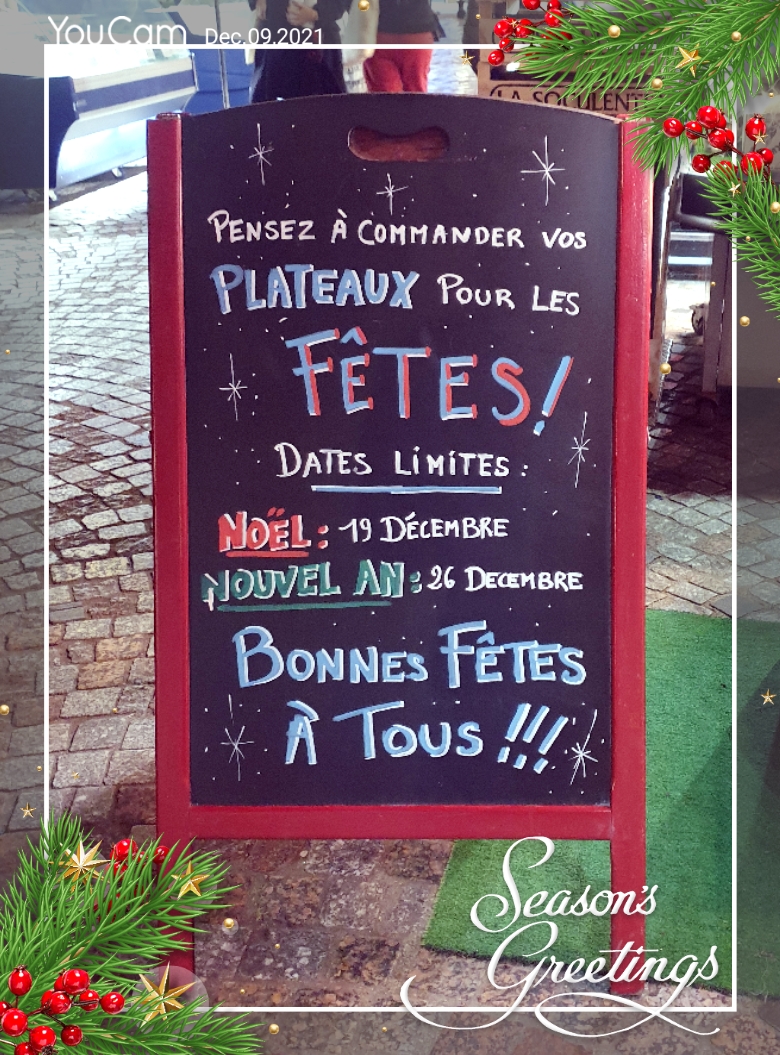 YouCam Dec.09.2021
LA SOCULENT
PENSEZ À COMMANDER VOS
PLATEAUX POUR LES
FÊTES!
DATES LIMITES :
NOËL : 19 DÉCEMBRE
NOUVEL AN : 26 DECEMBRE
BONNES FÊTES
À TOUS !!!
Season's
Greetings